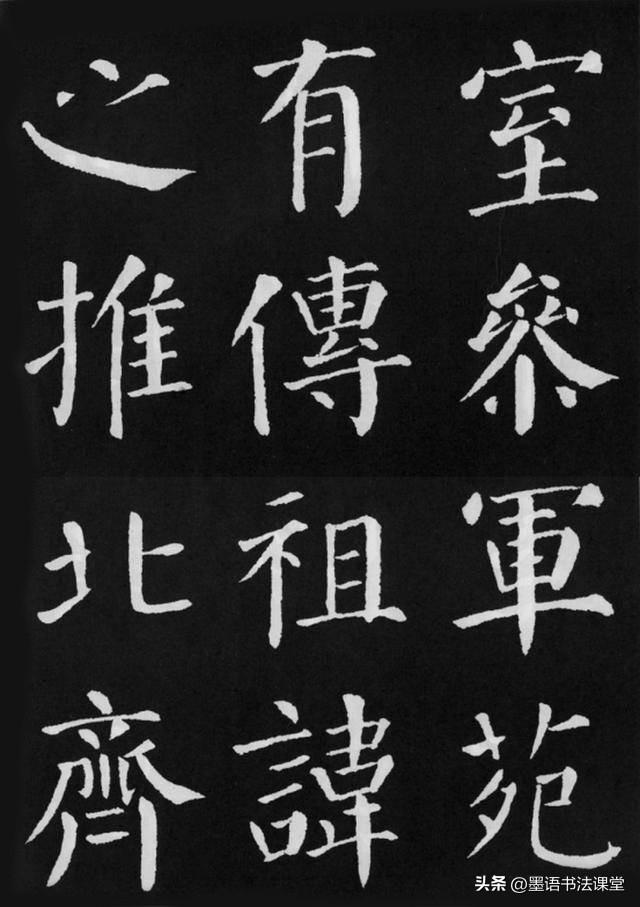 室參軍苑
有傳祖諱
之推北齊
头条 @墨语书法课堂